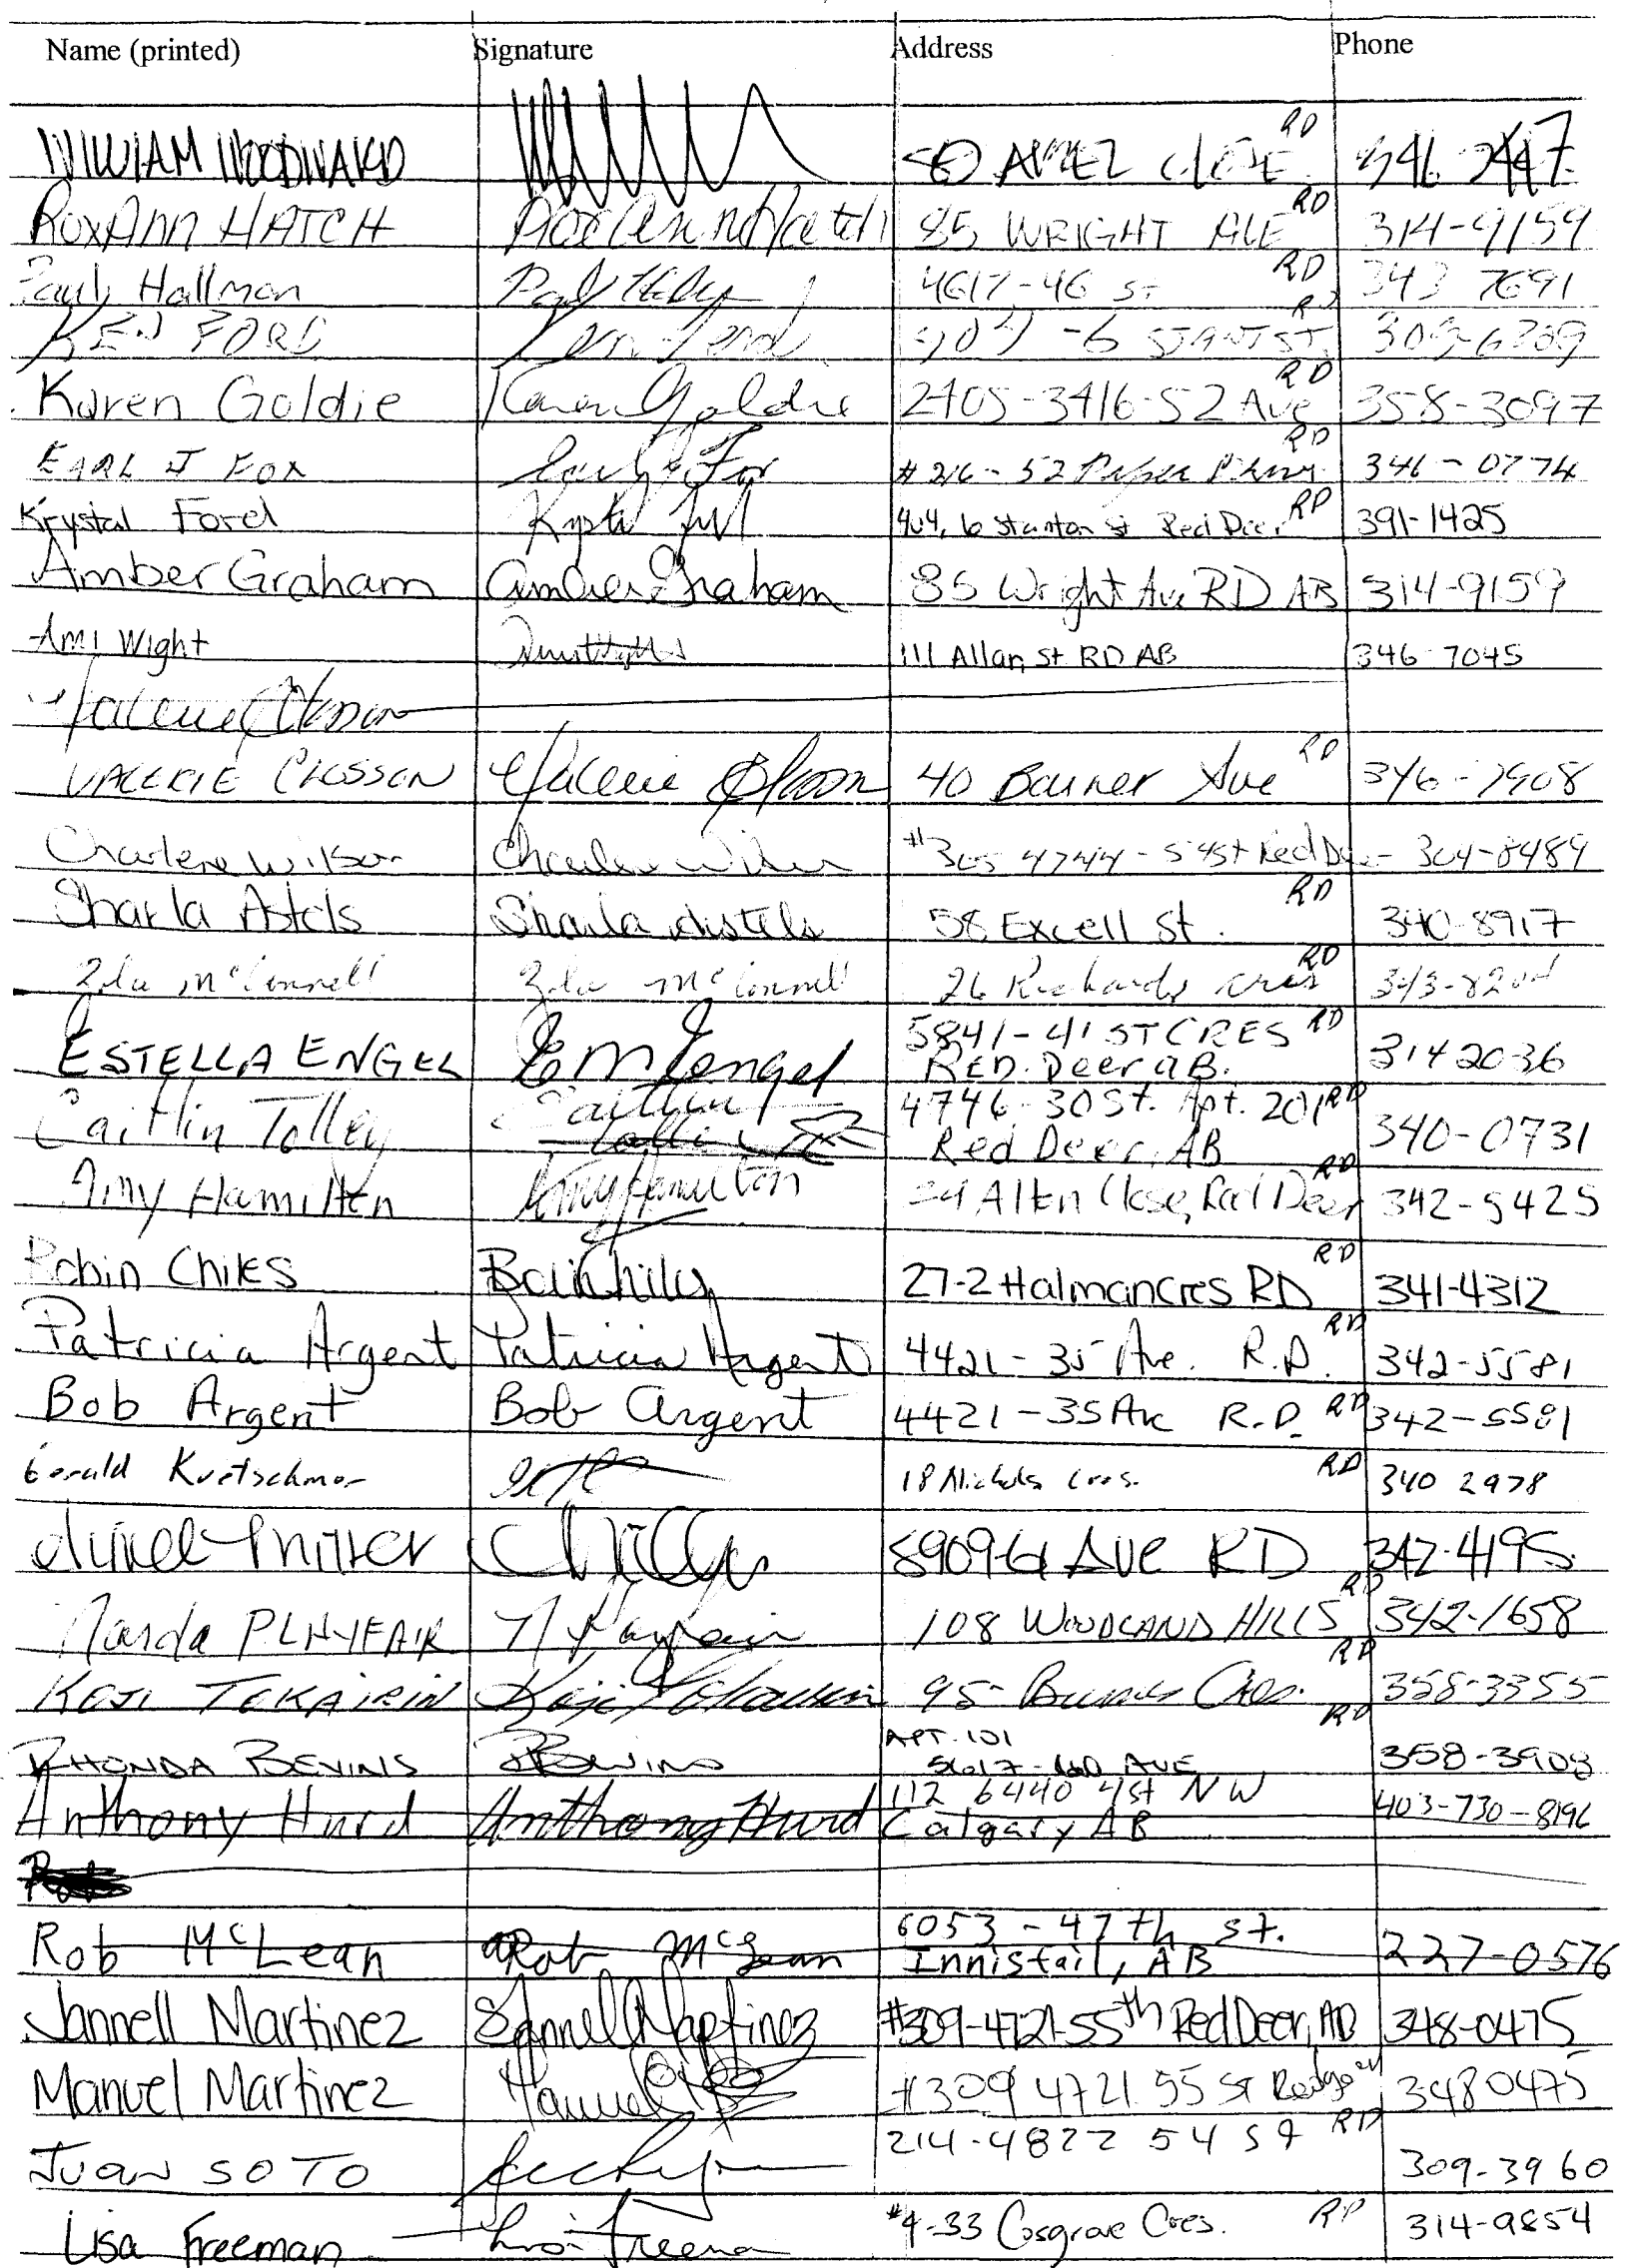 Name (printed) Signature Address Phone
WILLIAM WOODWARD CLOSE RD 346
ROXANN HATCH RoxAnn Hatch 85 WRIGHT AVE RD 314-9159
Hallman 4617-46 ST RD 343 7691
KEN FORD Ken Ford RD
Karen Goldie Karen Goldie 2405-3416-52 Ave RD 358-3097
EARL J FOX Earl J Fox #216-52 Piper RD 346-0774
Krystal Ford 404, 6 Stanton St Red Deer RD 391-1425
Amber Graham Amber Graham 85 Wright Ave RD AB 314-9159
Ami Wight 111 Allan St RD AB 346 7045
Valerie Closson
VALERIE CLOSSON Valerie Closson 40 Ave RD 346-7908
Charlene Wilson Charlene Wilson #305 4744-54st Red Deer 304-8489
Sharla Astels Sharla Astels 58 Excell St. RD 340-8917
McConnell McConnell 26 Richards Cres RD 343-8204
ESTELLA ENGEL E M Engel 5841-41 ST CRES RD 314 2036
RED. Deer AB.
Caitlin Tolley Caitlin 4746-30 St. Apt. 201 RD 340-0731
Red Deer, AB
Amy Hamilton Amy Hamilton Close, Red Deer RD 342-5425
Robin Chiles Robin Chiles 27-2 Halman Cres RD RD 341-4312
Patricia Argent Patricia Argent 4421-35 Ave. R.D. RD 342-5581
Bob Argent Bob Argent 4421-35 Ave R.D. RD 342-5581
Gerald Kretschmer 18 Nichols Cres. RD 340 2978
Miller 5909-61 AVE RD 342-4195
Narda PLAYFAIR N Playfair 108 WOODLAND HILLS RD 342-1658
KOJI TOKAIRIN Koji Tokairin 95 Cres. RD 358-3355
RHONDA BEVINS RBevins APT. 101 RD 358-3908
5617-60 AVE
Anthony Hurd Anthony Hurd 112 6440 4st NW 403-730-8196
Calgary AB
Rob McLean Rob McLean 6053-47th St. 227-0576
Innisfail, AB
Jannell Martinez Jannell Martinez #309-4721-55th Red Deer, AB 348-0475
Manuel Martinez Manuel #309 4721 55 St Red Deer 348 0475
JUAN SOTO 214-4822 54 St RD 309-3960
Lisa Freeman Lisa Freeman #4-33 Cosgrove Cres. RD 314-9854